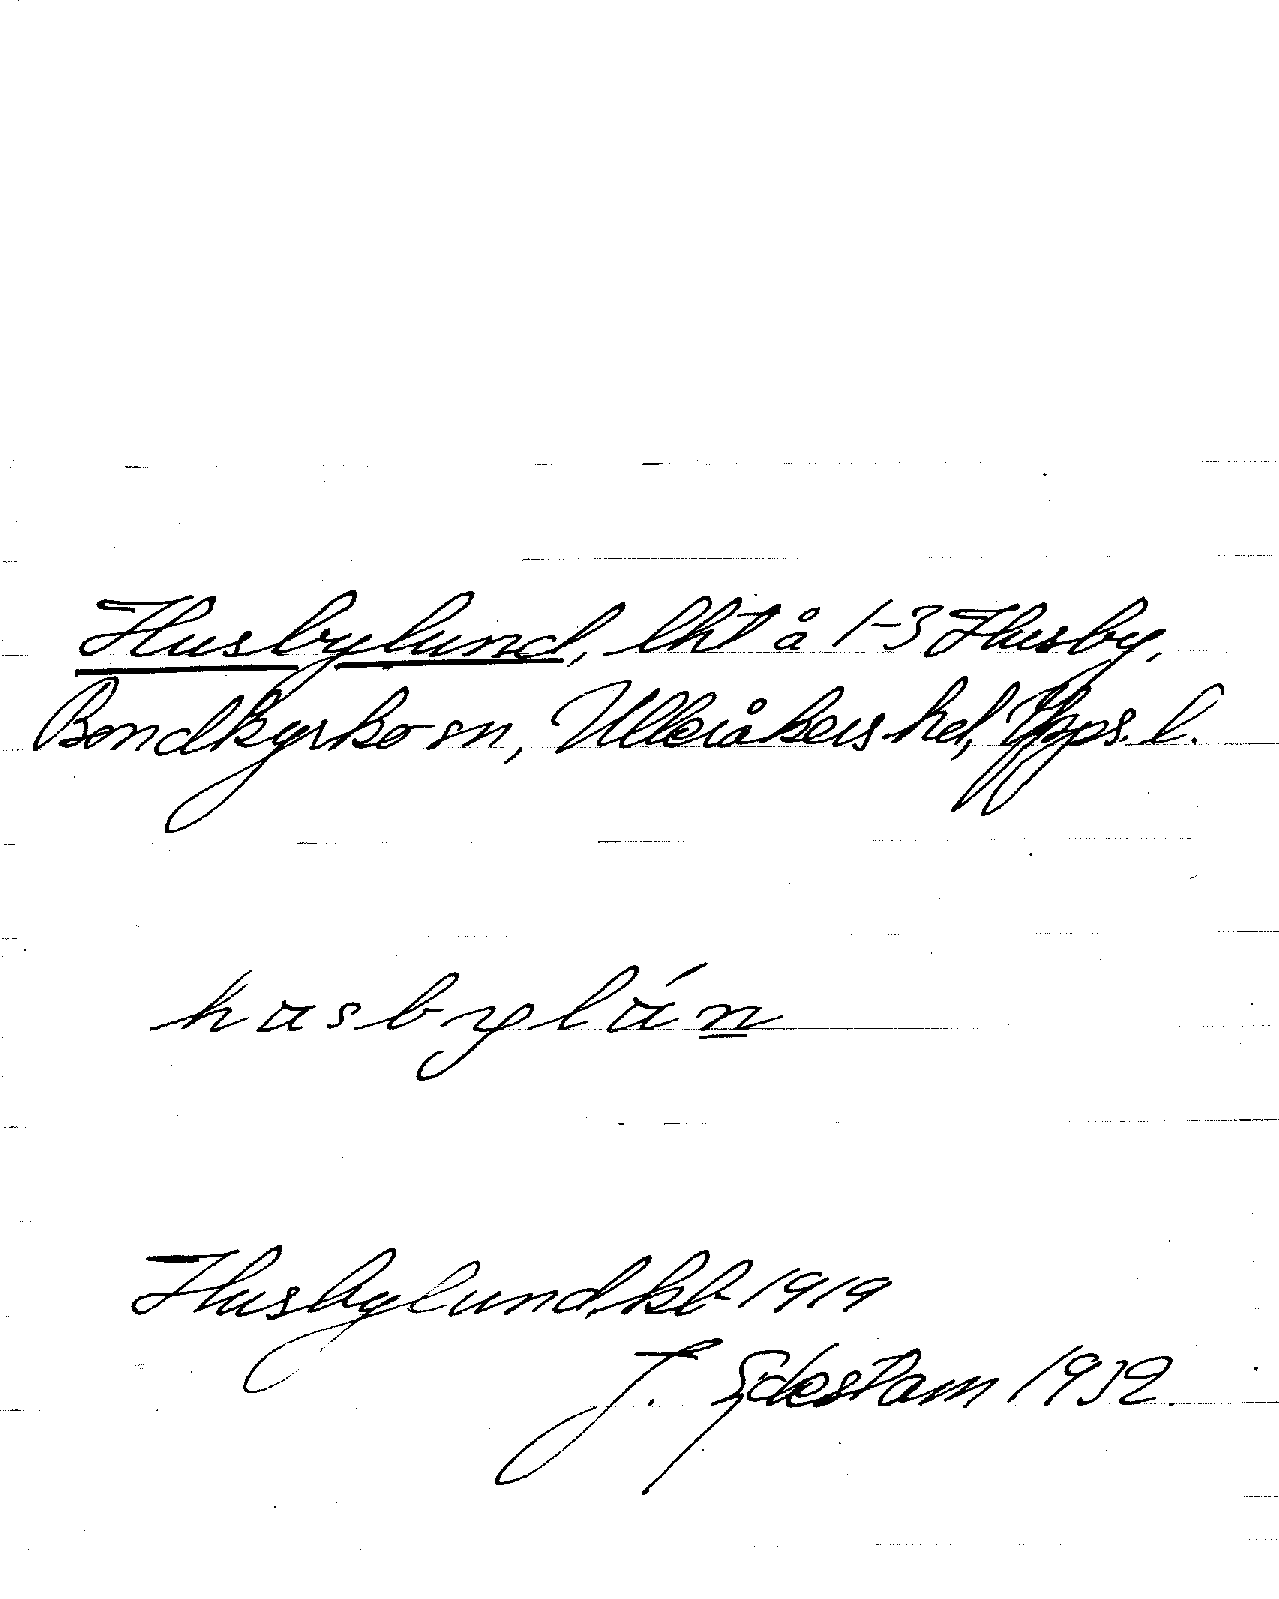 Husbylund, lht å 1-3 Husby,
Bondkyrko sn, Ulleråkers hd, Upps. l.
hasbylán
Husbylund kb 1919
J. Sdestam 1932